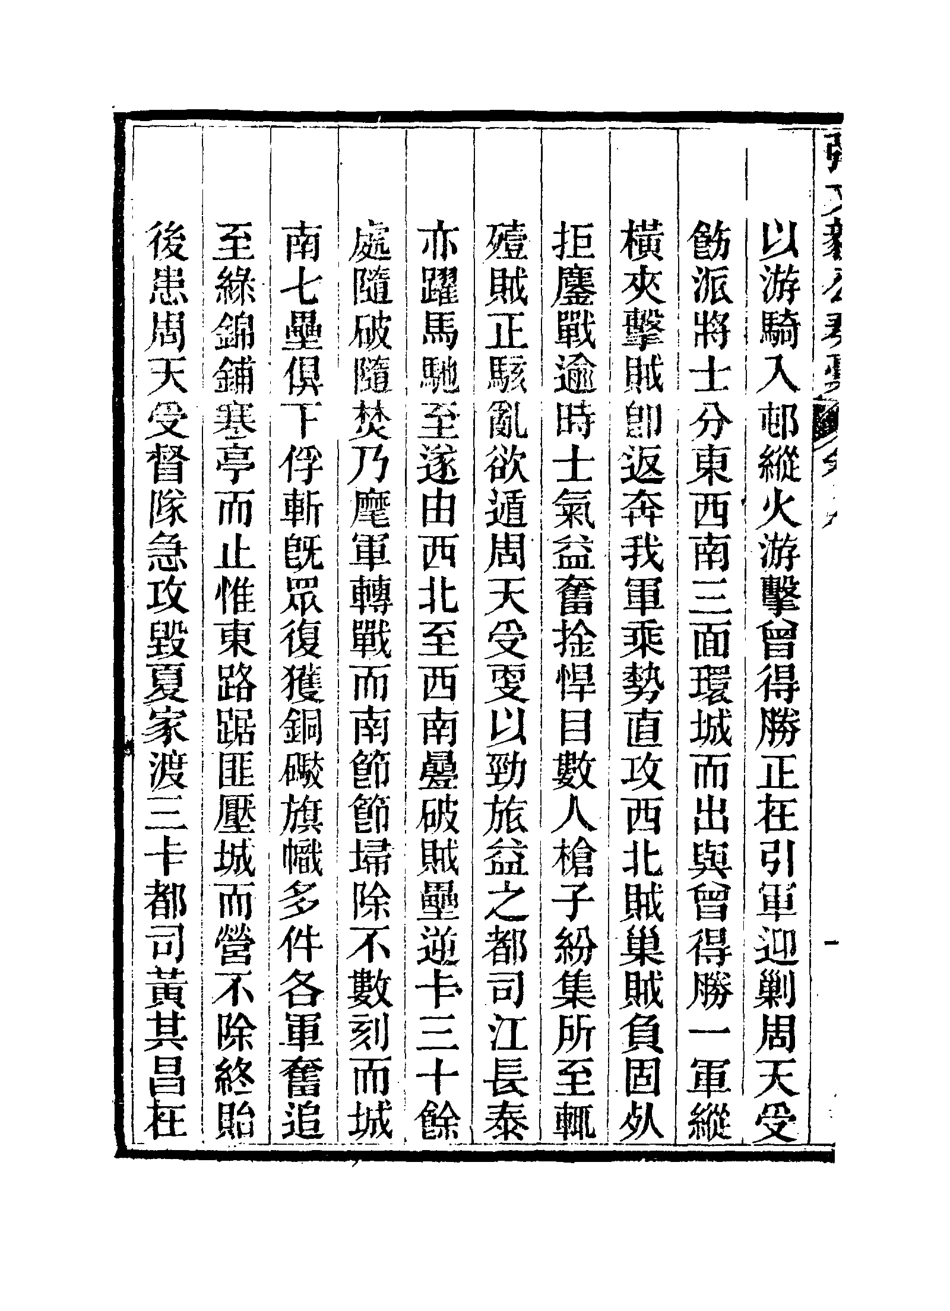 張文毅公奏稾
以游騎入邨縱火游擊曾得勝正在引軍迎剿周天受
飭派將士分東西南三面環城而出與曾得勝一軍縱
橫夾擊賊卽返奔我軍乘勢直攻西北賊巢賊負固死
拒鏖戰逾時士氣益奮捦悍目數人槍子紛集所至輒
殪賊正駭亂欲遁周天受更以勁旅益之都司江長泰
亦躍馬馳至遂由西北至西南疊破賊壘逆卡三十餘
處隨破隨焚乃麾軍轉戰而南節節埽除不數刻而城
南七壘俱下俘斬旣眾復獲銅礮旗幟多件各軍奮追
至綠錦鋪寒亭而止惟東路踞匪壓城而營不除終貽
後患周天受督隊急攻毀夏家渡三卡都司黃其昌在